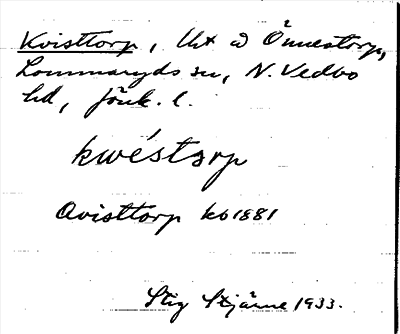 Kvisttorp, Ut å Önnestorp,
Lommaryds sn, N. Vedbo
hd, Jönk. l.
kwéstorp
Qvisttorp kb 1881
Stig Stjärne 1933.